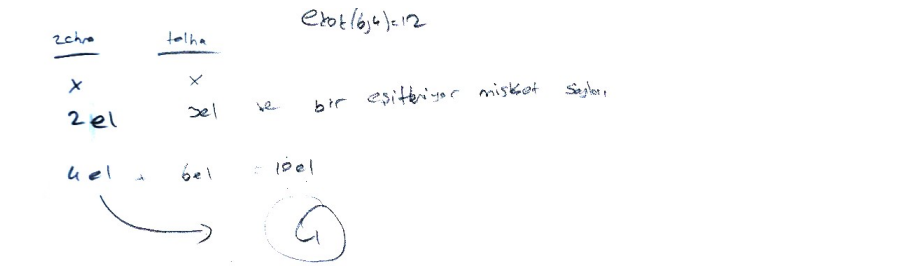 ekok(6,4)=12
zehra talha
x x
2el 3el ve bir eşitleniyor misket sayıları
4el + 6el = 10el
4